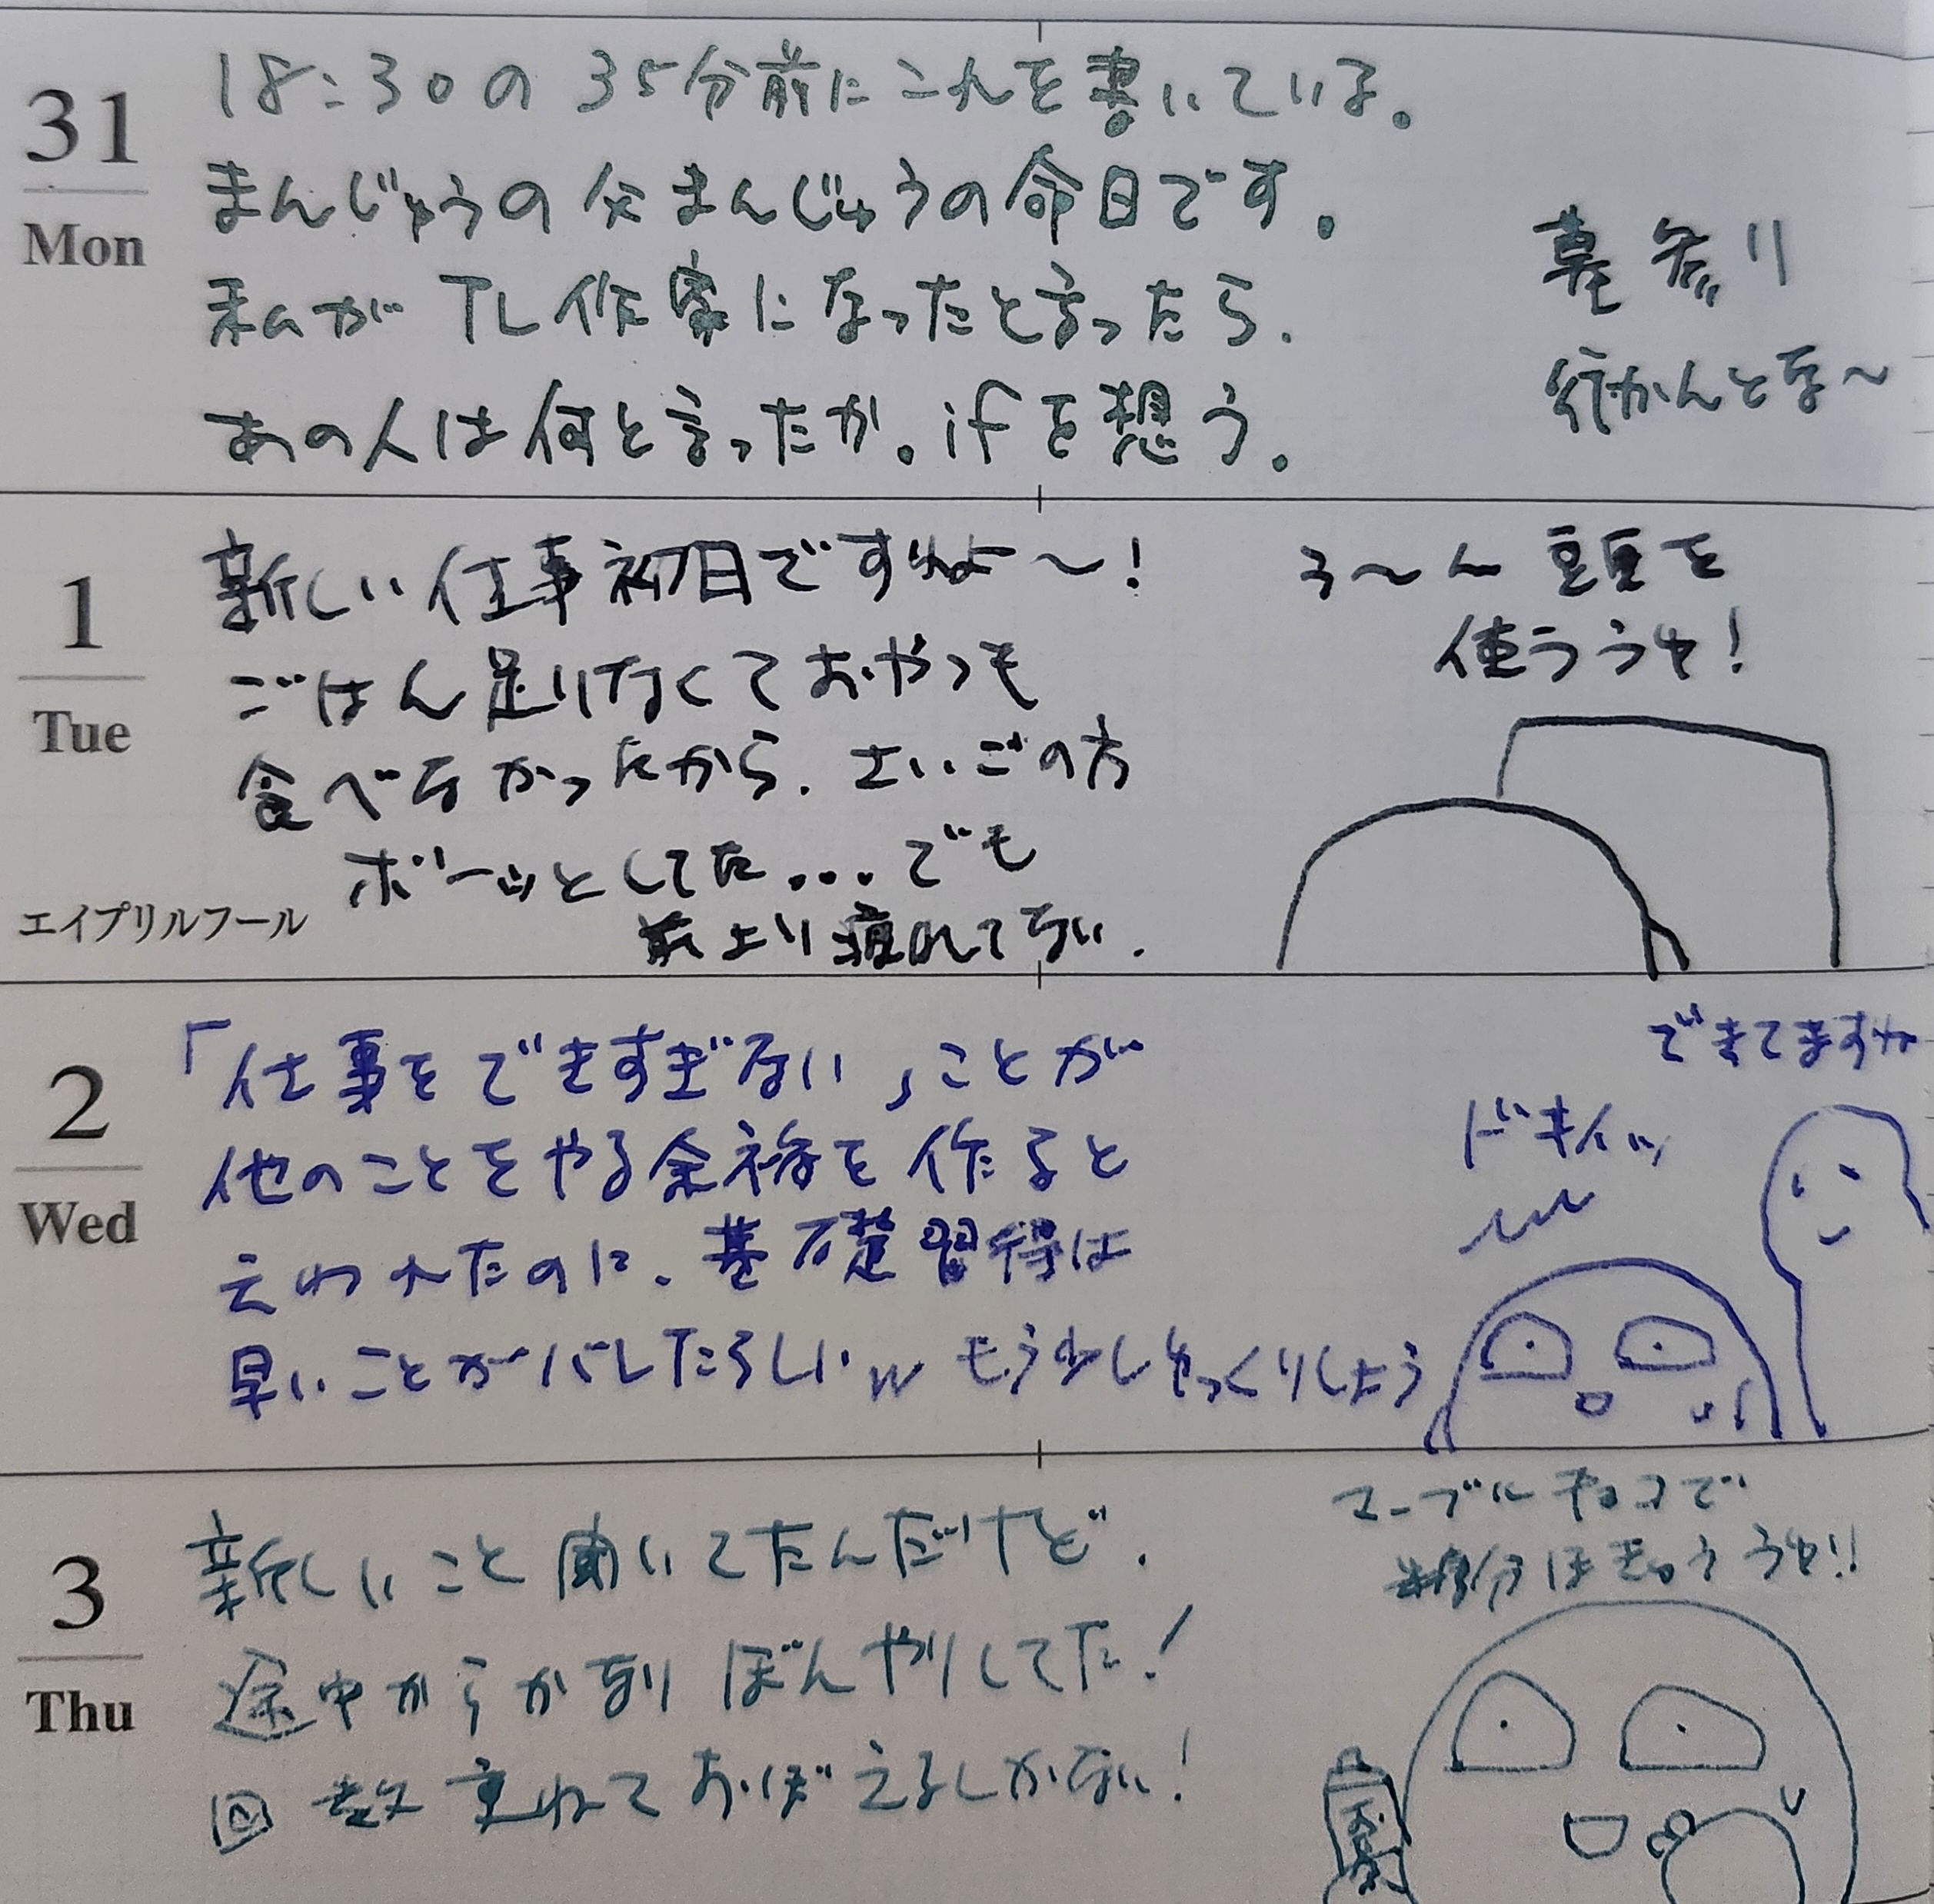 31
Mon
18:30の35分前にこれを書いている。
まんじゅうの父まんじゅうの命日です。
私がTL作家になったと言ったら、
あの人は何と言ったか。ifを想う。
墓参り
行かんとな〜
1
Tue
エイプリルフール
新しい仕事初日ですわよ〜!
ごはん足りなくておやつも
食べなかったから、さいごの方
ボーッとしてた...でも
前より疲れてない。
う〜ん頭を
使ううゥ!
2
Wed
「仕事をできすぎない」ことが
他のことをやる余裕を作ると
言われたのに、基礎習得は
早いことがバレたらしいw もう少しゆっくりしよう
できてますね
ドキィッ
3
Thu
新しいこと聞いてたんだけど、
途中からかなりぼんやりしてた!
回数重ねておぼえるしかない!
マーブルチョコで
糖分ほきゅううゥ!!